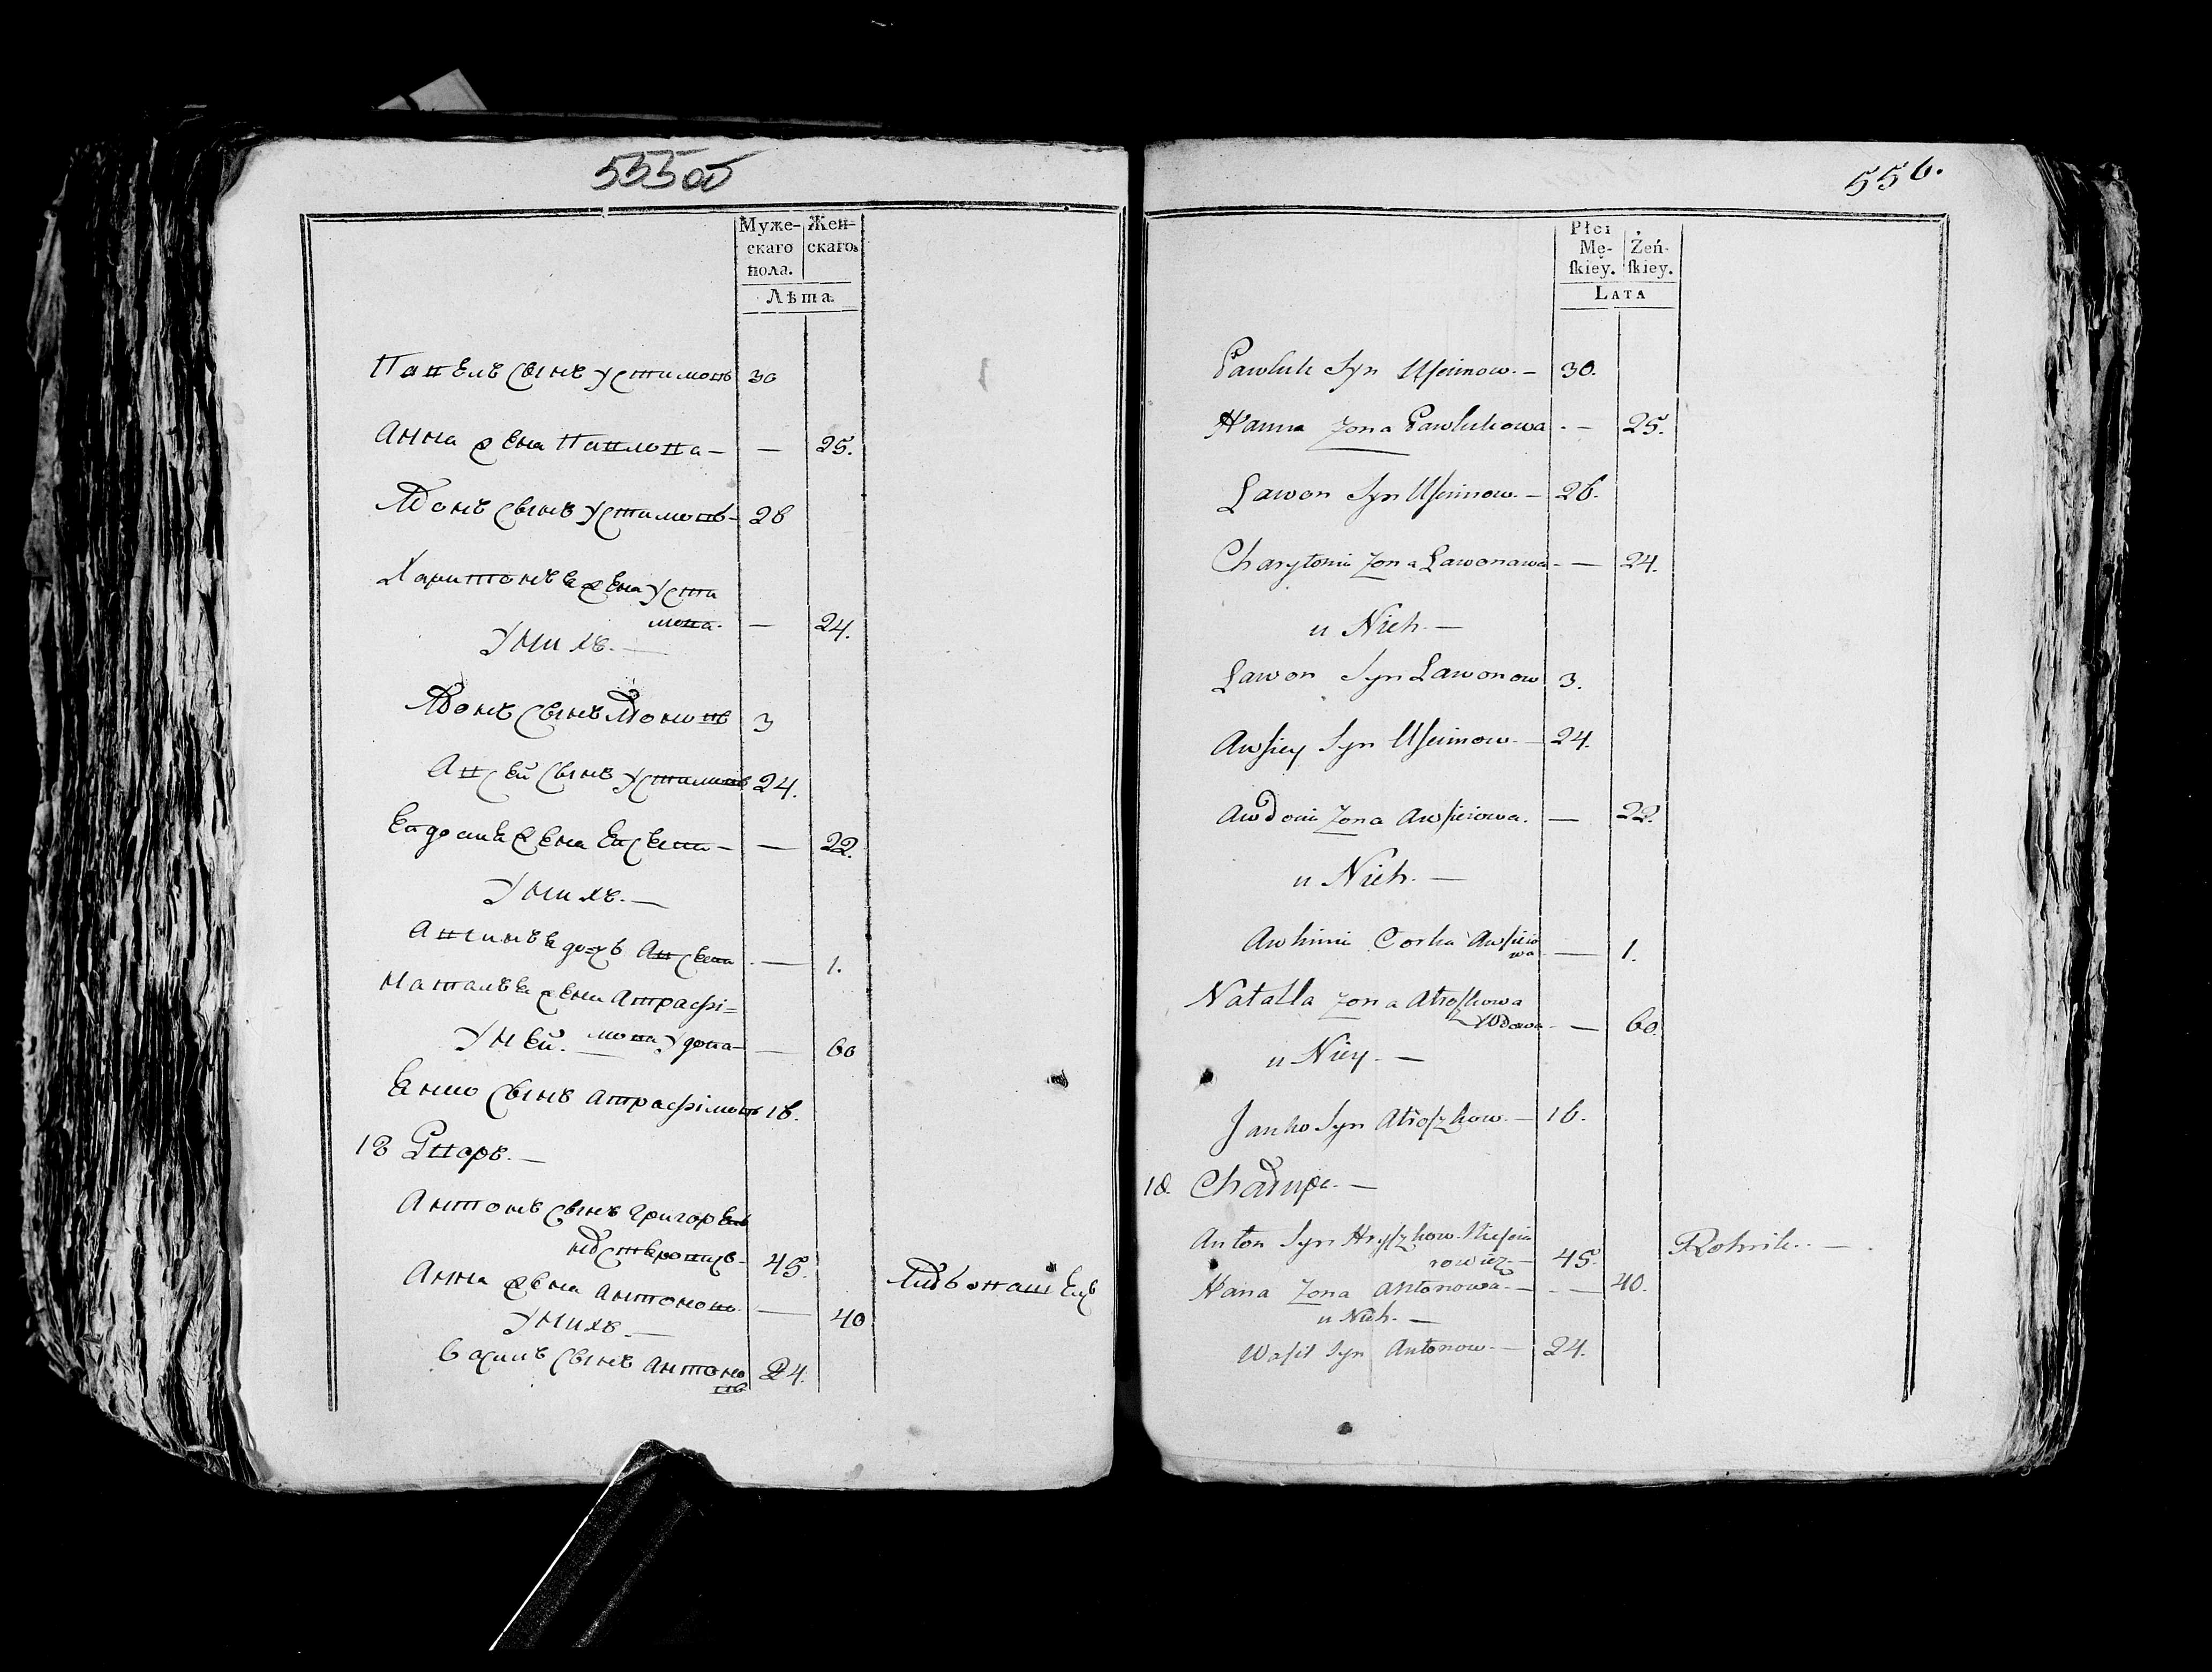 555об
Муже- Жен-
скаго скаго
пола.
Лѣта.
Павелъ сынъ Устимовъ 30
Анна жена Павлова — — 25.
Леонъ сынъ Устимовъ — 26
Харитонъя жена Усти
мова. — 24.
У нихъ. —
Леонъ сынъ Леоновъ 3
Авсей сынъ Устимовъ 24.
Евдокия жена Евсеева — — 22.
У нихъ. —
дочь Авсеева — 1.
Наталья жена Атрафi=
мова Удова — — 60
У ней. —
Янко сынъ Атрафiмовъ 16.
18 Дворъ. —
Антонъ сынъ Григорьевъ
45.
Анна жена Антонова — 40
У нихъ. —
Василь сынъ Антоно
въ 24.
556.
Płci
Mę- Żeń-
skiey. skiey.
LATA
Pawluk Syn Uscimow. — 30.
Hanna Zona Pawlukowa - — 25.
Lawon Syn Uscimow. — 26.
Charytonia Zona Lawonowa - — 24.
u Nich. —
Lawon Syn Lawonow 3.
Awsiey Syn Uscimow. — 24.
Awdocia Zona Awsieiowa. — 22.
u Nich. —
Awhinia Corka Awsieio
wa — 1.
Natalla Zona Atroszkowa
Wdowa - — 60.
u Niey. —
Janko Syn Atroszkow. — 16.
18. Chałupa. —
Anton Syn Hryszkow Niescie
rowicz — 45. Rolnik. —
Hana Zona Antonowa. — - — 40.
u Nich. —
Wasil Syn Antonow — 24.